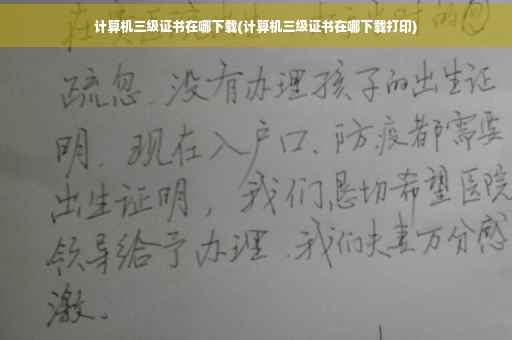 计算机三级证书在哪下载(计算机三级证书在哪下载打印)
疏忽、没有办理孩子的出生证
明、现在入户口、防疫都需要
出生证明，我们恳切希望医院
领导给予办理、我们夫妻万分感
激。